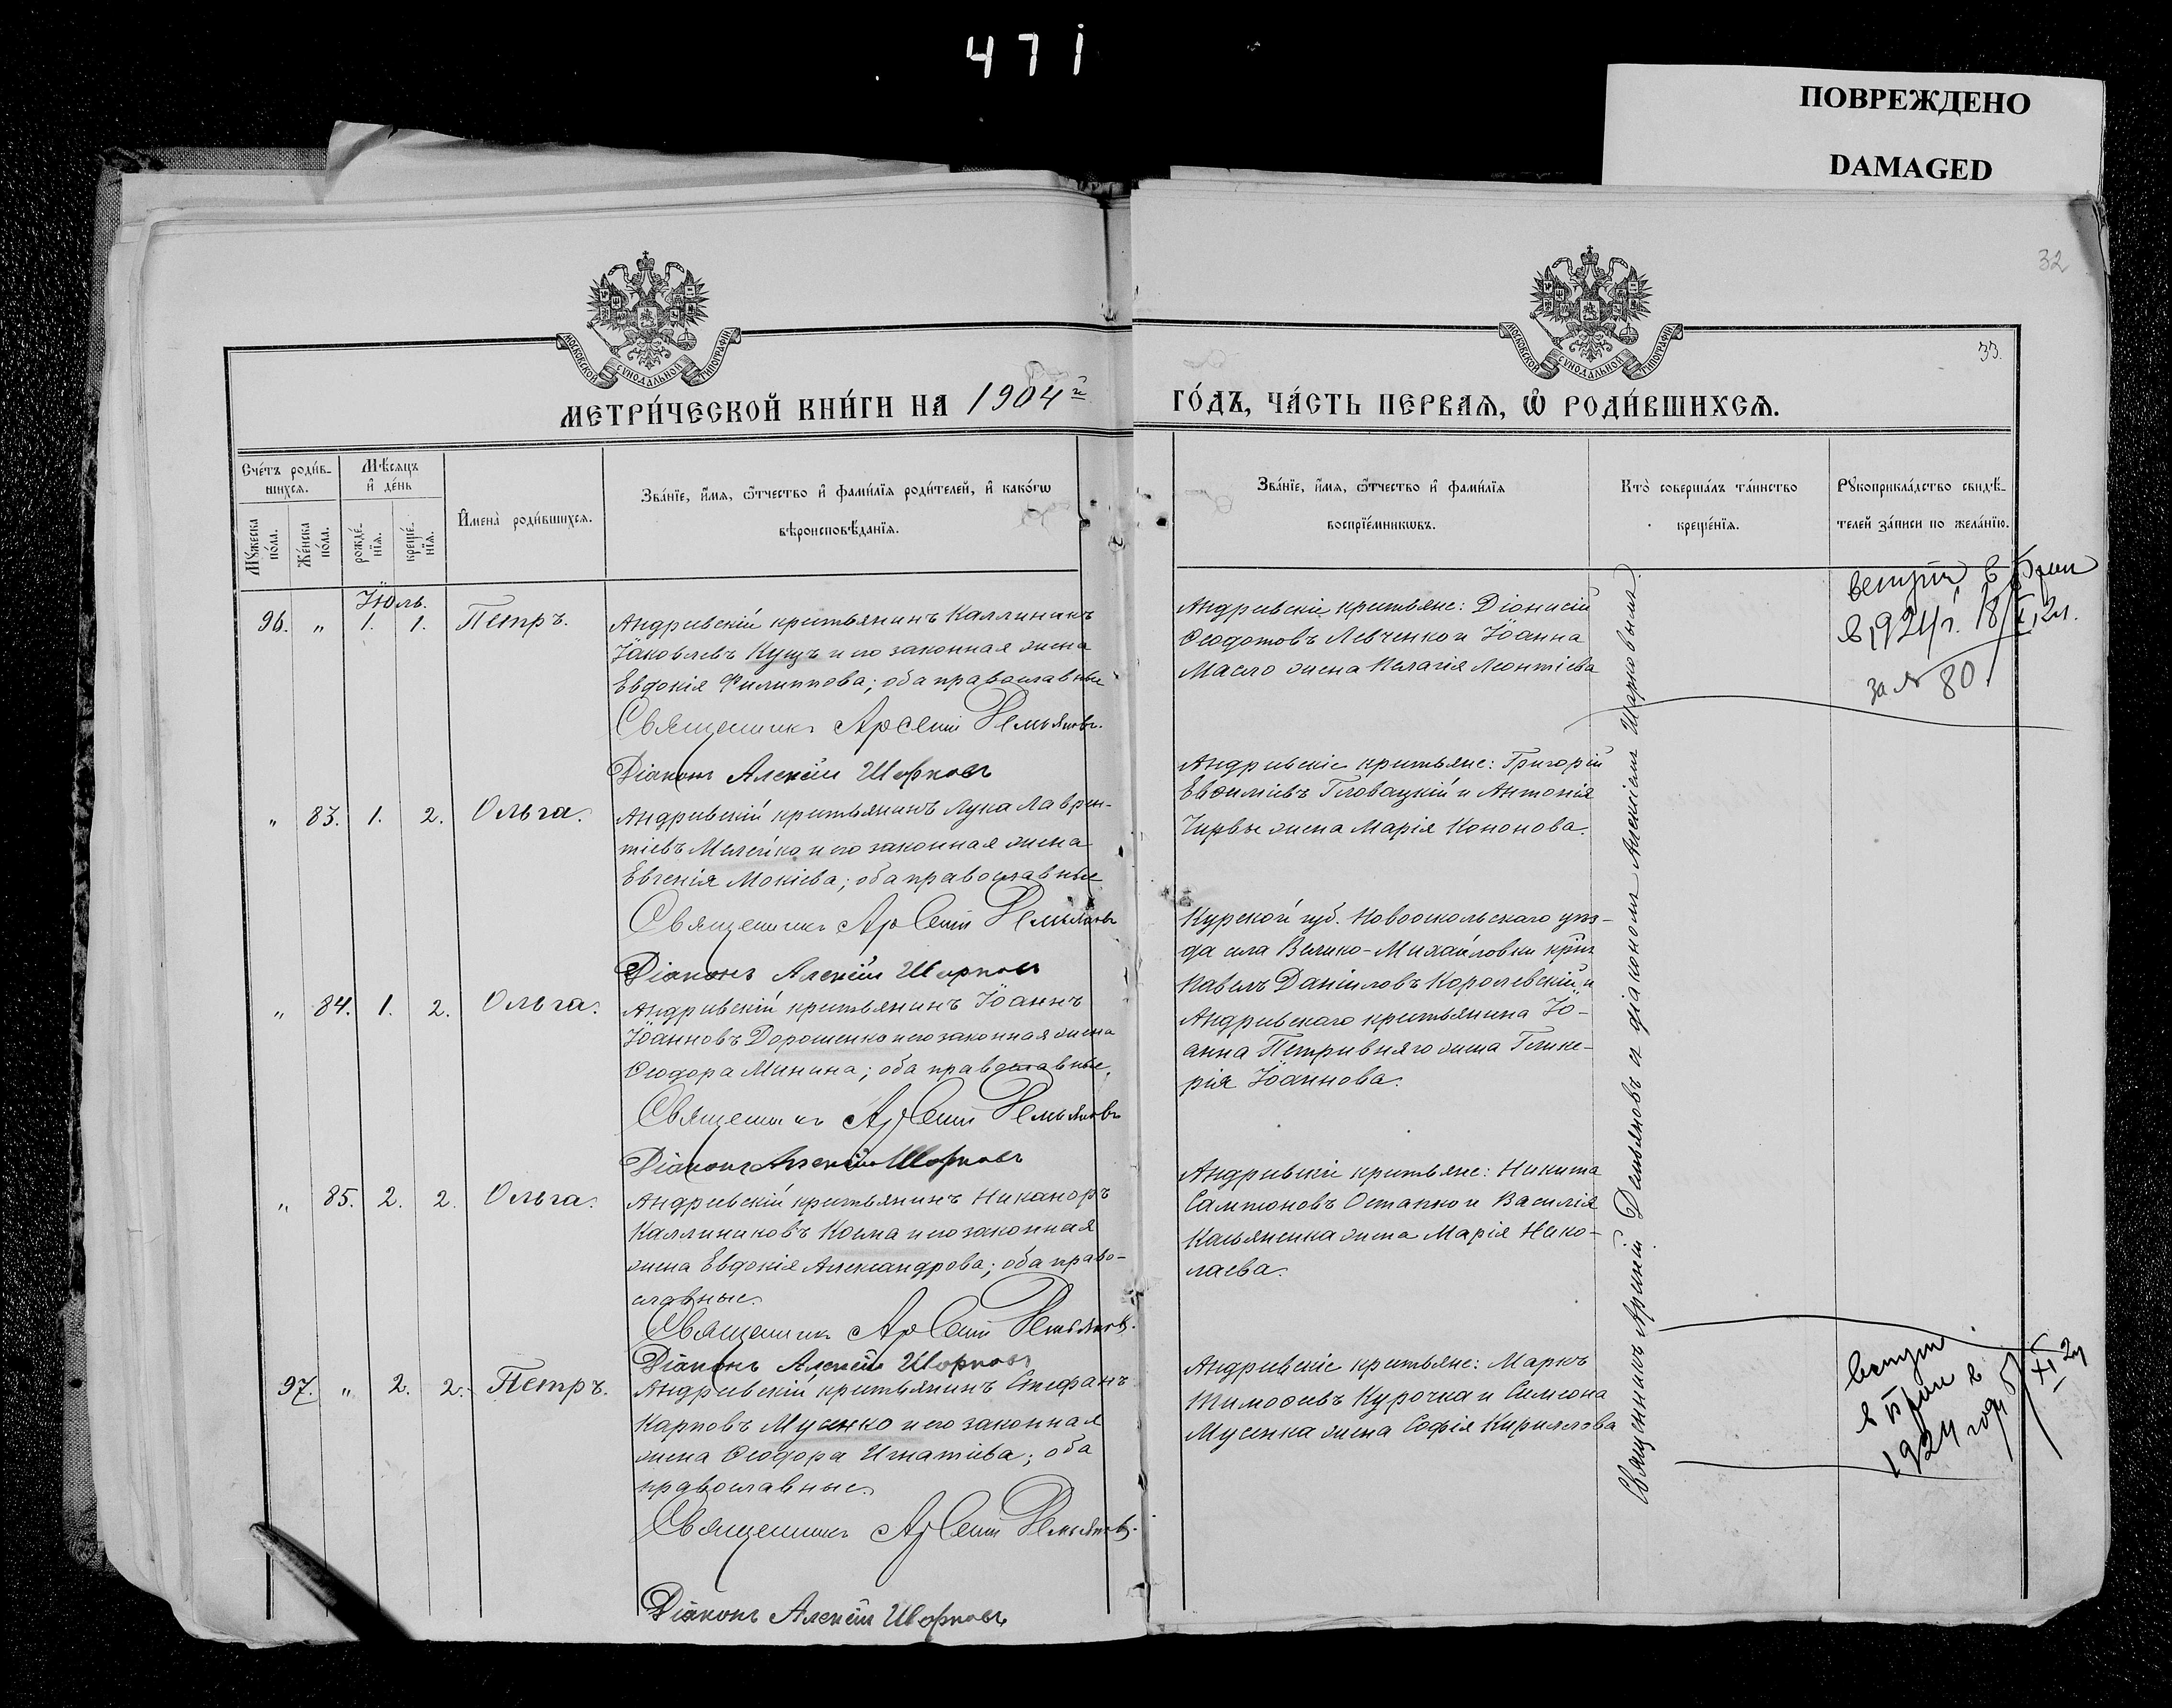 471
ПОВРЕЖДЕНО
DAMAGED
32
33.
МОСКОВСКОЙ СѴНОДАЛЬНОЙ ТИПОГРАФІИ
МОСКОВСКОЙ СѴНОДАЛЬНОЙ ТИПОГРАФІИ
МЕТРИ́ЧЕСКОЙ КНИ́ГИ НА 1904й
ГО́ДЪ, ЧА́СТЬ ПЕРВАЯ, Ѡ҆ РОДИ́ВШИХСЯ.
Сче́тъ роди́в-
шихся.
Мѣ́сяцъ
и҆ де́нь
Му́жеска
по́ла.
Же́нска
по́ла.
рожде́-
нїя.
креще́-
нїя.
И҆мена̀ роди́вшихся.
Зва́нїе, и҆́мя, ѻ҆́тчество и҆ фами́лїя роди́телей, и҆ како́гѡ
вѣроисповѣ́данїя.
Зва́нїе, и҆́мя, ѻ҆́тчество и҆ фами́лїя
воспрїе́мникѡвъ.
Кто̀ соверша́лъ та́инство
креще́нїя.
Рꙋкоприкла́дство свидѣ́-
телей за́писи по жела́нїю.
Іюль.
96. „ 1. 1. Петръ.
Андреевскій крестьянинъ Каллиникъ
Іаковлевъ Кущъ и его законная жена
Евдокія Филиппова; оба православные
Священникъ Арсеній Демьяновъ.
Діаконъ Алексій Шарковъ
Андреевскіе крестьяне: Діонисій
Ѳеодотовъ Левченко и Іоанна
Масло жена Пелагія Леонтіева
вступил в брак
в 1924 г. 18/XI 24.
за № 80
„ 83. 1. 2. Ольга.
Андреевскій крестьянинъ Лука Лаврен-
тіевъ Мелейко и его законная жена
Евгенія Мокіева; оба православные
Священникъ Арсеній Демьяновъ
Діаконъ Алексій Шарковъ
Андреевскіе крестьяне: Григорій
Евѳиміевъ Гловацкій и Антонія
жена Марія Кононова.
„ 84. 1. 2. Ольга.
Андреевскій крестьянинъ Іоаннъ
Іоанновъ Дорошенко и его законная жена
Ѳеодора Минина; оба православные.
Священникъ Арсеній Демьяновъ
Діаконъ Алексій Шарковъ
Курской губ. Новооскольскаго уѣз-
да села Велико-Михайловки крест.
Павелъ Даніиловъ Королевскій и
Андреевскаго крестьянина Іо-
анна Петривняго жена Глике-
рія Іоаннова.
„ 85. 2. 2. Ольга.
Андреевскій крестьянинъ Никаноръ
Каллиниковъ Косма и его законная
жена Евдокія Александрова; оба право-
славные.
Священникъ Арсеній Демьяновъ.
Діаконъ Алексій Шарковъ
Андреевскіе крестьяне: Никита
Сампсоновъ Остапко и Василія
Касьяненка жена Марія Нико-
лаева.
97. „ 2. 2. Петръ.
Андреевскій крестьянинъ Стефанъ
Карповъ Мусенко и его законная
жена Ѳеодора Игнатіева; оба
православные.
Священникъ Арсеній Демьяновъ.
Діаконъ Алексій Шарковъ
Андреевскіе крестьяне: Маркъ
Тимоѳеевъ Курочка и Симеона
Мусенка жена Софія Кириллова
вступ
в брак в
1924 году
XI 24
Священникъ Арсеній Демьяновъ съ діакономъ Алексіемъ Шарковымъ.